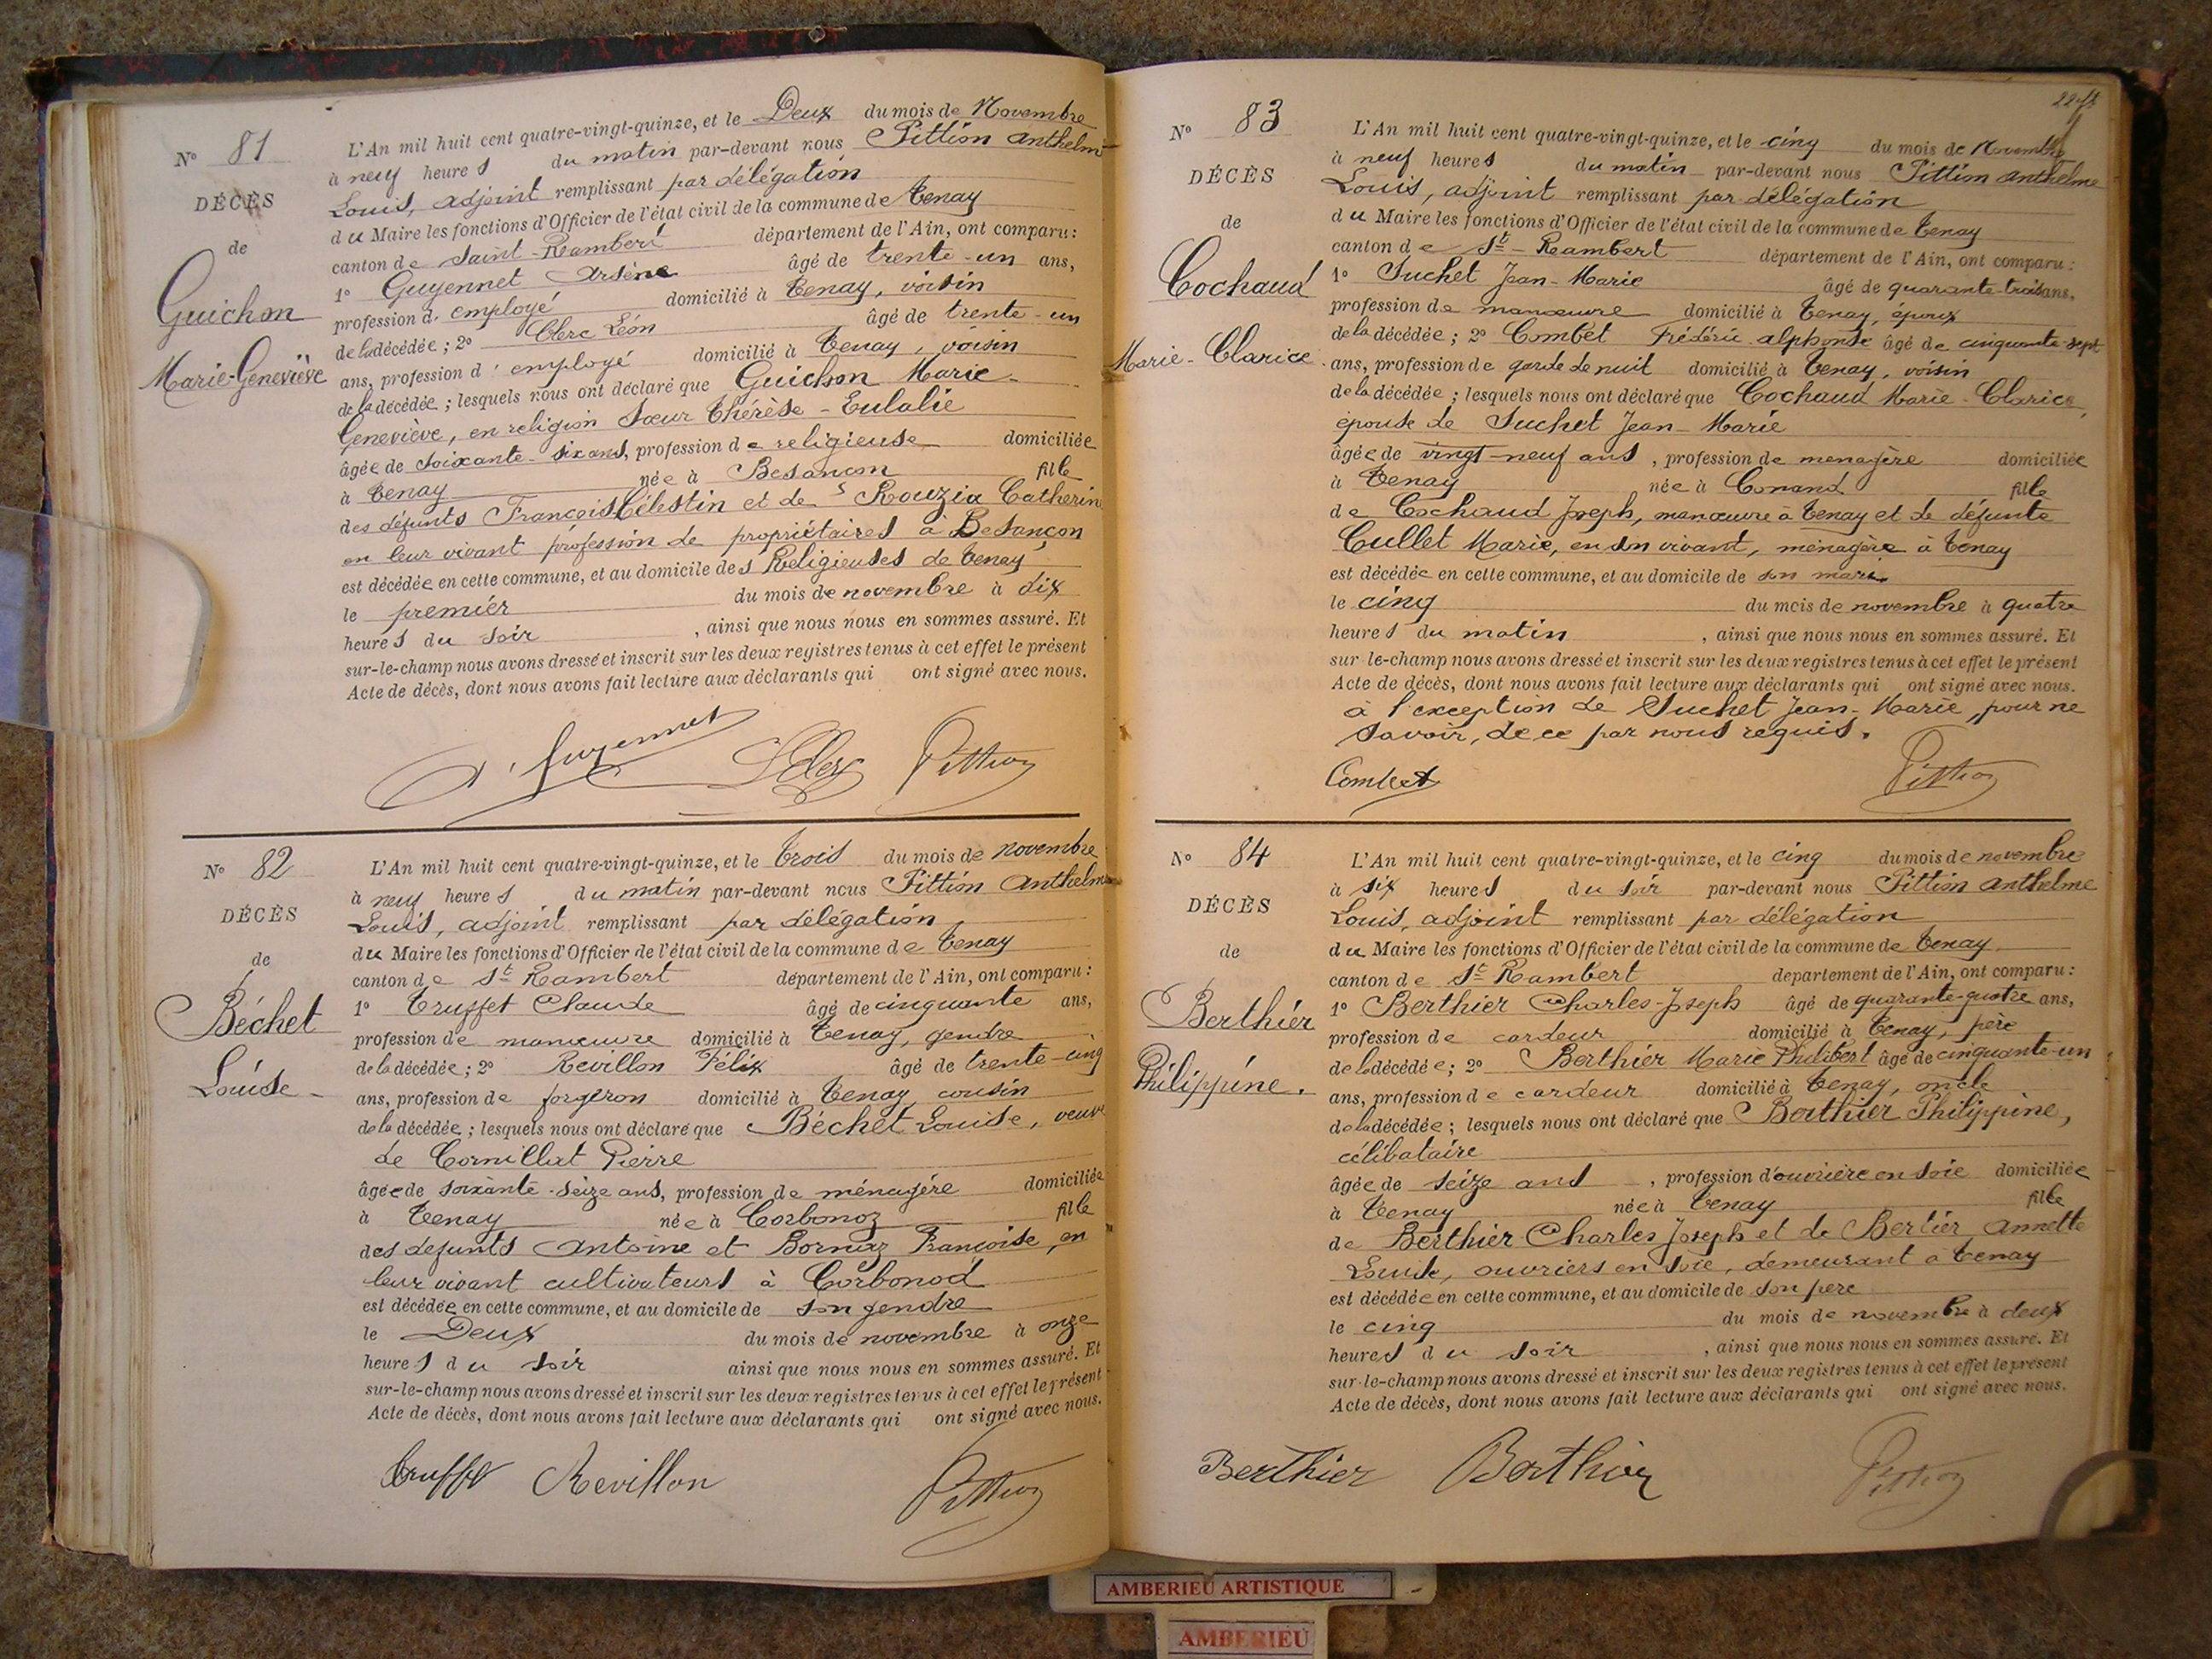 N° 81
DÉCÈS
de
Guichon
Marie-Geneviève
L'An mil huit cent quatre-vingt-quinze, et le Deux du mois de Novembre
à neuf heures du matin par-devant nous Pittion Anthelme
Louis, adjoint remplissant par délégation
du Maire les fonctions d'Officier de l'état civil de la commune de Tenay
canton de Saint-Rambert département de l'Ain, ont comparu :
1° Guyennet Arsène âgé de trente-un ans,
profession d' employé domicilié à Tenay, voisin
de la décédée ; 2° Clerc Léon âgé de trente-un
ans, profession d' employé domicilié à Tenay, voisin
de la décédée ; lesquels nous ont déclaré que Guichon Marie-
Geneviève, en religion Sœur Thérèse-Eulalie
âgée de soixante-six ans, profession de religieuse domiciliée
à Tenay née à Besançon fille
des défunts François Célestin et de Rouzia Catherine
en leur vivant profession de propriétaires à Besançon
est décédée en cette commune, et au domicile des Religieuses de Tenay
le premier du mois de novembre à dix
heures du soir, ainsi que nous nous en sommes assuré. Et
sur-le-champ nous avons dressé et inscrit sur les deux registres tenus à cet effet le présent
Acte de décès, dont nous avons fait lecture aux déclarants qui ont signé avec nous.
Pittion
N° 82
DÉCÈS
de
Béchet
Louise
L'An mil huit cent quatre-vingt-quinze, et le trois du mois de novembre
à neuf heures du matin par-devant nous Pittion Anthelme
Louis, adjoint remplissant par délégation
du Maire les fonctions d'Officier de l'état civil de la commune de Tenay
canton de St Rambert département de l'Ain, ont comparu :
1° Truffet Claude âgé de cinquante ans,
profession de manœuvre domicilié à Tenay, gendre
de la décédée ; 2° Revillon Félix âgé de trente-cinq
ans, profession de forgeron domicilié à Tenay cousin
de la décédée ; lesquels nous ont déclaré que Béchet Louise, veuve
de Cornillat Pierre
âgée de soixante-seize ans, profession de ménagère domiciliée
à Tenay née à Corbonoz fille
des defunts Antoine et Borniaz Françoise, en
leur vivant cultivateurs à Corbonod
est décédée en cette commune, et au domicile de son gendre
le Deux du mois de novembre à onze
heures du soir ainsi que nous nous en sommes assuré. Et
sur-le-champ nous avons dressé et inscrit sur les deux registres tenus à cet effet le présent
Acte de décès, dont nous avons fait lecture aux déclarants qui ont signé avec nous.
Truffet Revillon Pittion
N° 83
DÉCÈS
de
Cochaud
Marie-Clarice
L'An mil huit cent quatre-vingt-quinze, et le cinq du mois de Novembre
à neuf heures du matin par-devant nous Pittion Anthelme
Louis, adjoint remplissant par délégation
du Maire les fonctions d'Officier de l'état civil de la commune de Tenay
canton de St-Rambert département de l'Ain, ont comparu :
1° Suchet Jean-Marie âgé de quarante-trois ans,
profession de manœuvre domicilié à Tenay, époux
de la décédée ; 2° Combet Frédéric alphonse âgé de cinquante-sept
ans, profession de garde de nuit domicilié à Tenay, voisin
de la décédée ; lesquels nous ont déclaré que Cochaud Marie-Clarice,
épouse de Suchet Jean-Marie
âgée de vingt-neuf ans, profession de menagère domiciliée
à Tenay née à Conand fille
de Cochaud Joseph, manœuvre à Tenay et de défunte
Cullet Marie, en son vivant, ménagère à Tenay
est décédée en cette commune, et au domicile de son mari
le cinq du mois de novembre à quatre
heures du matin, ainsi que nous nous en sommes assuré. Et
sur-le-champ nous avons dressé et inscrit sur les deux registres tenus à cet effet le présent
Acte de décès, dont nous avons fait lecture aux déclarants qui ont signé avec nous.
à l'exception de Suchet Jean-Marie, pour ne
savoir, de ce par nous requis.
Combet Pittion
N° 84
DÉCÈS
de
Berthier
Philippine.
L'An mil huit cent quatre-vingt-quinze, et le cinq du mois de novembre
à six heures du soir par-devant nous Pittion Anthelme
Louis, adjoint remplissant par délégation
du Maire les fonctions d'Officier de l'état civil de la commune de Tenay
canton de St Rambert département de l'Ain, ont comparu :
1° Berthier Charles-Joseph âgé de quarante-quatre ans,
profession de cardeur domicilié à Tenay, père
de la décédée ; 2° Berthier Marie Philibert âgé de cinquante-un
ans, profession de cardeur domicilié à Tenay, oncle
de la décédée ; lesquels nous ont déclaré que Berthier Philippine,
célibataire
âgée de seize ans, profession d'ouvrière en soie domiciliée
à Tenay née à Tenay fille
de Berthier Charles Joseph et de Bertier Annette
Louise, ouvriers en soie, demeurant à Tenay
est décédée en cette commune, et au domicile de son père
le cinq du mois de novembre à deux
heures du soir, ainsi que nous nous en sommes assuré. Et
sur-le-champ nous avons dressé et inscrit sur les deux registres tenus à cet effet le présent
Acte de décès, dont nous avons fait lecture aux déclarants qui ont signé avec nous.
Berthier Berthier Pittion
AMBERIEU ARTISTIQUE
AMBERIEU